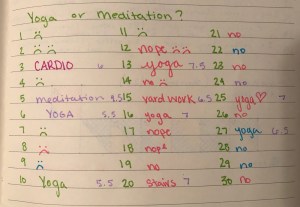 Yoga or meditation?
1 ☹ 11 ☹ 21 no
2 ☹ ☹ 12 nope ☹☹ 22 no
3 CARDIO 6 13 yoga 7.5 23 no
4 ☹ 14 no ☹ 24 no
5 meditation 9.5 15 yard work 6.5 25 yoga ♡ 7
6 YOGA 5.5 16 yoga 7 26 no
7 ☹ 17 nope 27 yoga 6.5
8 ☹ 18 nope 28 no
9 ☹ 19 no 29 no
10 Yoga 5.5 20 stairs 7 30 no